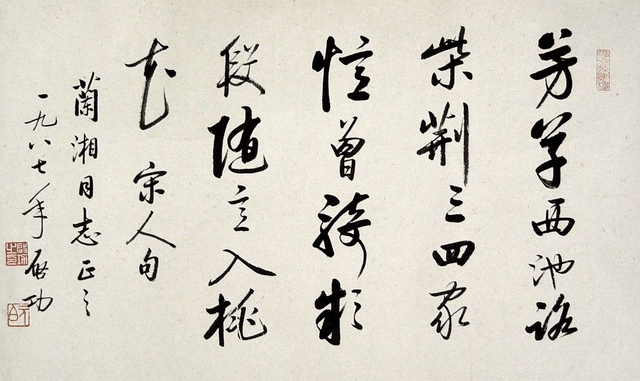 芳草西池路
柴荆三四家
憶曾騎款
段随意入桃
花 宋人句
蘭湘同志正之
一九八七年 启功